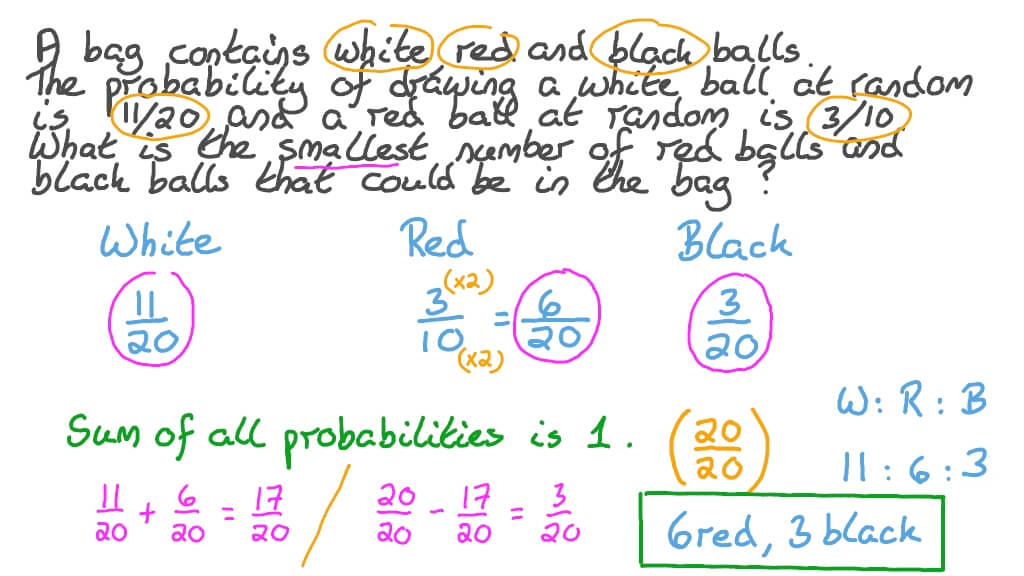 A bag contains white red and black balls.
The probability of drawing a white ball at random
is 11/20 and a red ball at random is 3/10
What is the smallest number of red balls and
black balls that could be in the bag ?
White Red Black
11/20 3/10 (x2) (x2) = 6/20 3/20
W : R : B
Sum of all probabilities is 1. (20/20)
11 : 6 : 3
11/20 + 6/20 = 17/20 / 20/20 - 17/20 = 3/20
6 red, 3 black